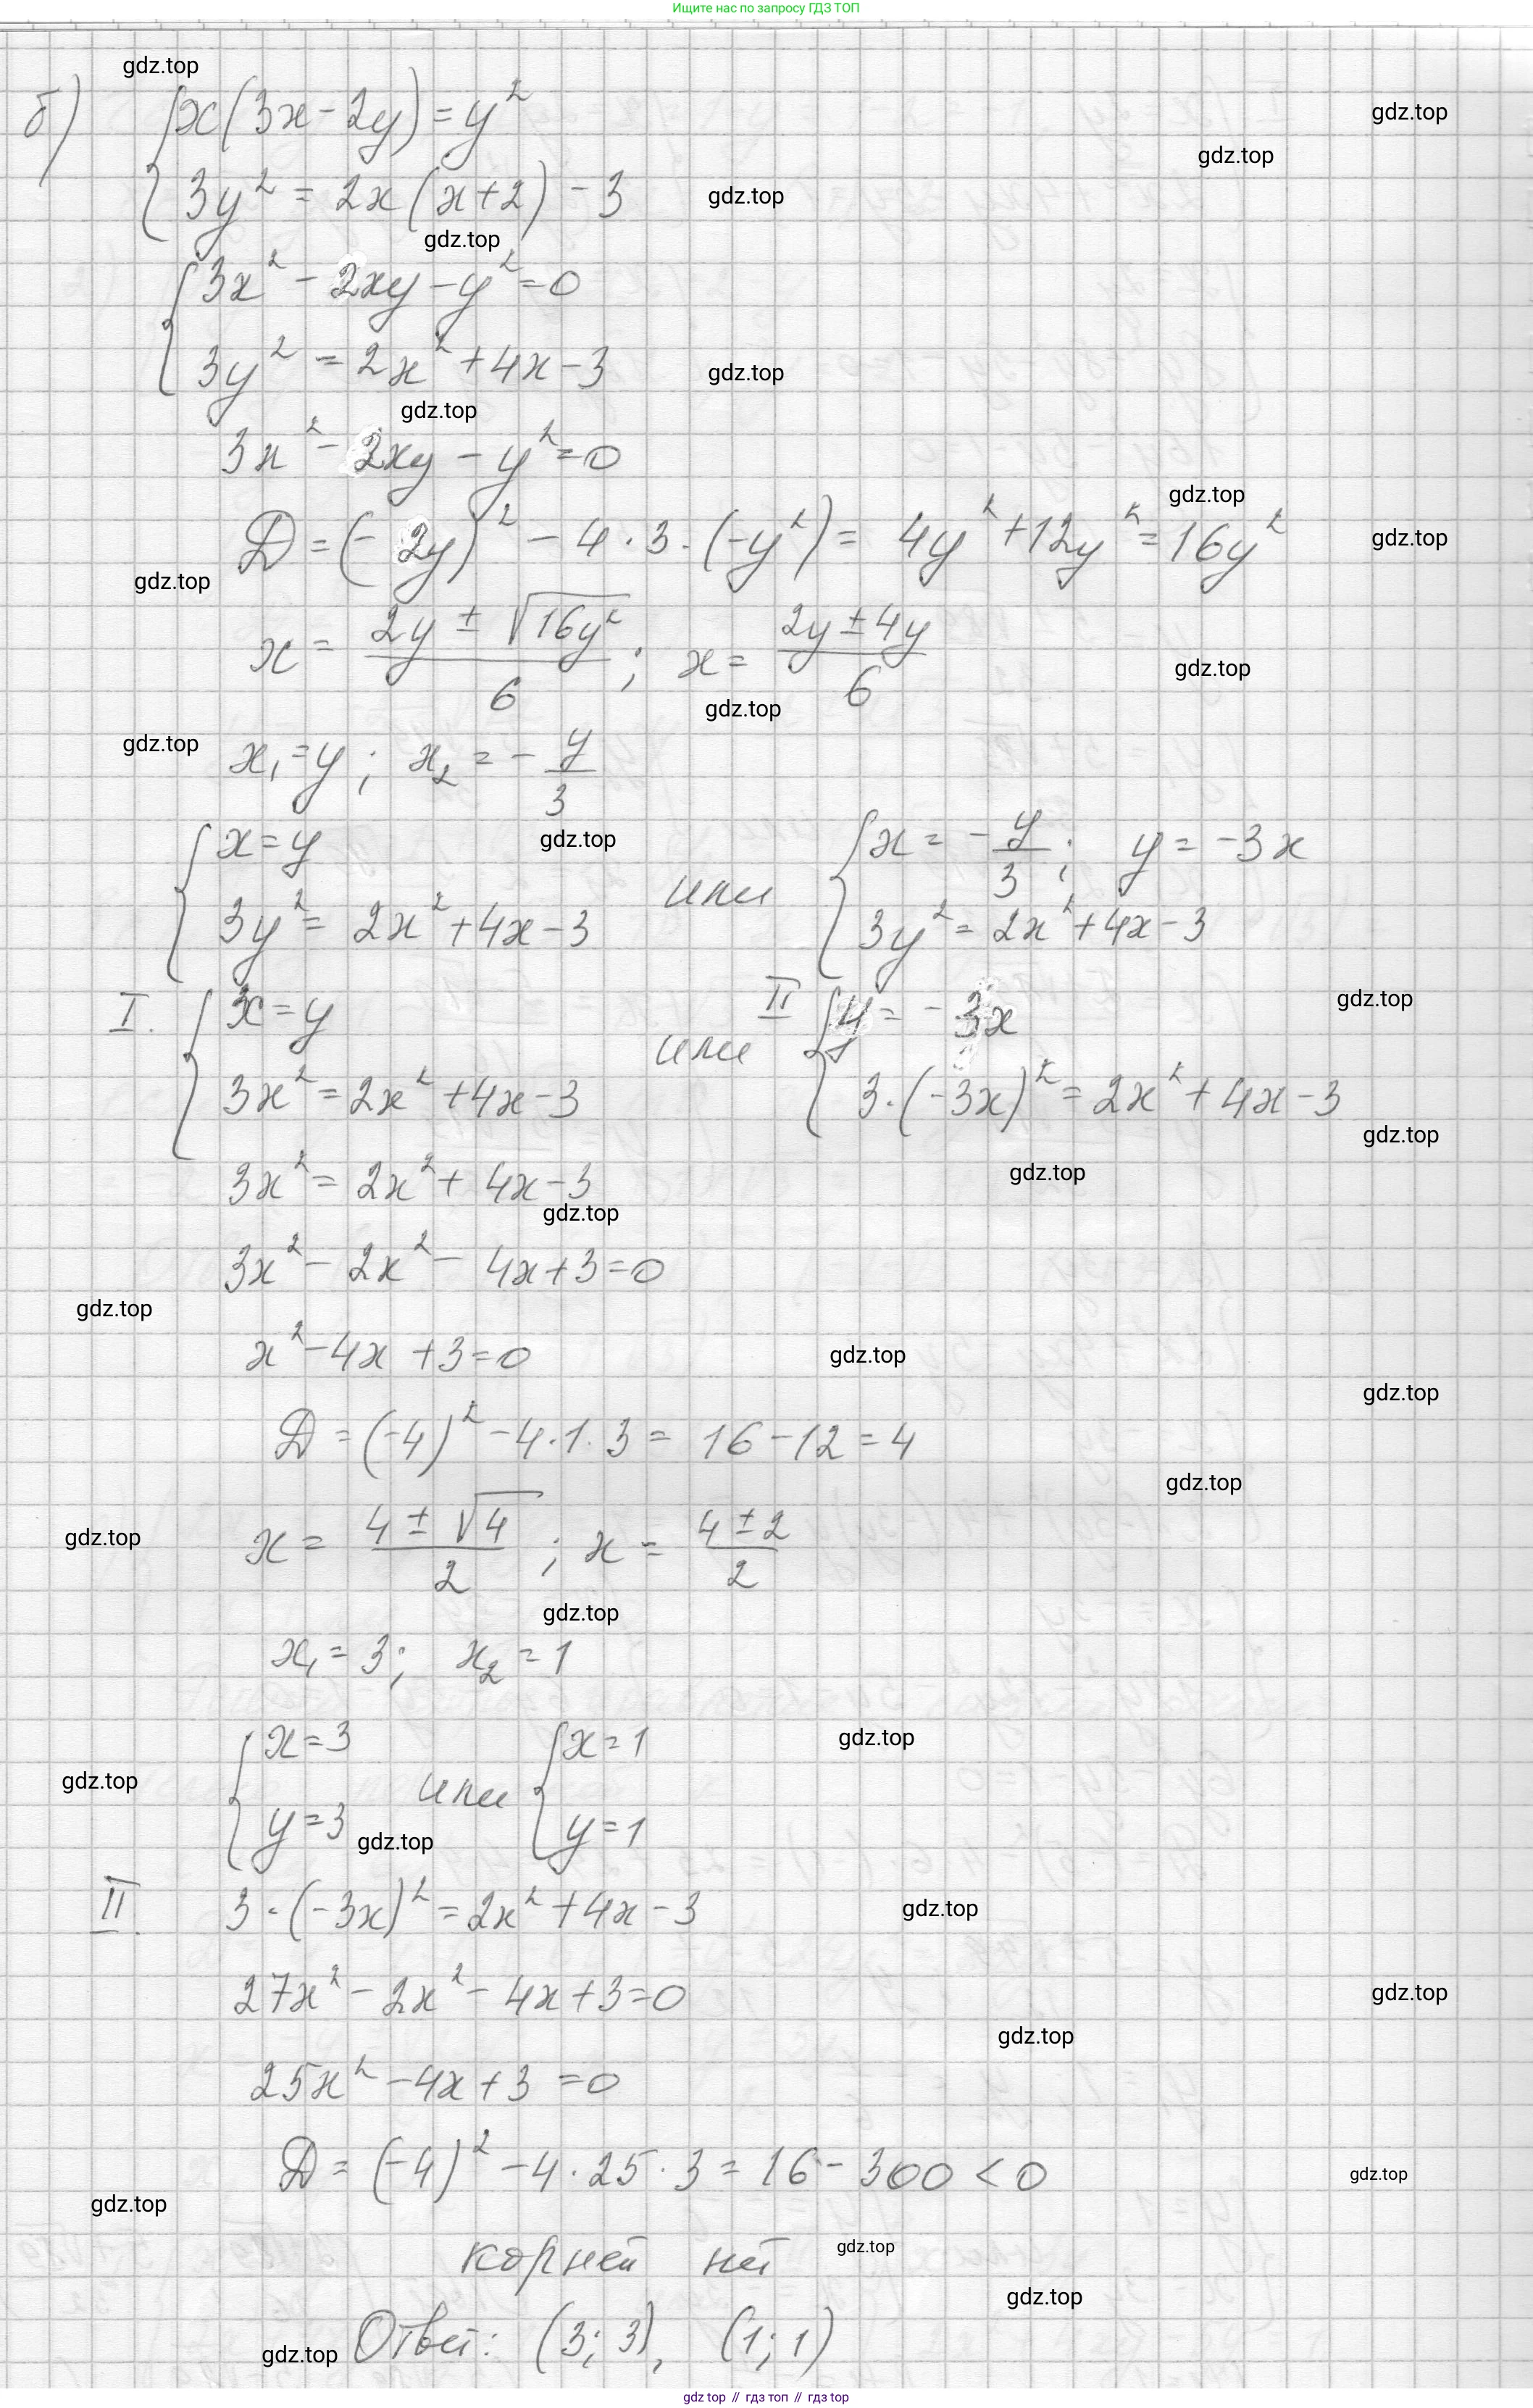 Ищите нас по запросу ГДЗ ТОП
gdz.top
б) { x(3x - 2y) = y²
gdz.top
gdz.top
{ 3y² = 2x(x+2) - 3
gdz.top
gdz.top
{ 3x² - 2xy - y² = 0
{ 3y² = 2x² + 4x - 3
gdz.top
gdz.top
3x² - 2xy - y² = 0
gdz.top
D = (-2y)² - 4 · 3 · (-y²) = 4y² + 12y² = 16y²
gdz.top
gdz.top
x = (2y ± √16y²)/6 ; x = (2y ± 4y)/6
gdz.top
gdz.top
gdz.top
x₁ = y ; x₂ = - y/3
gdz.top
{ x = y
{ 3y² = 2x² + 4x - 3
или
{ x = - y/3 ; y = -3x
{ 3y² = 2x² + 4x - 3
gdz.top
I. { x = y
{ 3x² = 2x² + 4x - 3
или
II { y = -3x
{ 3·(-3x)² = 2x² + 4x - 3
gdz.top
gdz.top
3x² = 2x² + 4x - 3
gdz.top
3x² - 2x² - 4x + 3 = 0
gdz.top
x² - 4x + 3 = 0
gdz.top
gdz.top
D = (-4)² - 4·1·3 = 16 - 12 = 4
gdz.top
gdz.top
x = (4 ± √4)/2 ; x = (4 ± 2)/2
gdz.top
x₁ = 3; x₂ = 1
gdz.top
{ x = 3
{ y = 3
или
{ x = 1
{ y = 1
gdz.top
gdz.top
II. 3·(-3x)² = 2x² + 4x - 3
gdz.top
27x² - 2x² - 4x + 3 = 0
gdz.top
gdz.top
25x² - 4x + 3 = 0
D = (-4)² - 4·25·3 = 16 - 300 < 0
gdz.top
gdz.top
корней нет
gdz.top
gdz.top
Ответ: (3; 3), (1; 1)
gdz.top
gdz top // гдз топ // гдз top